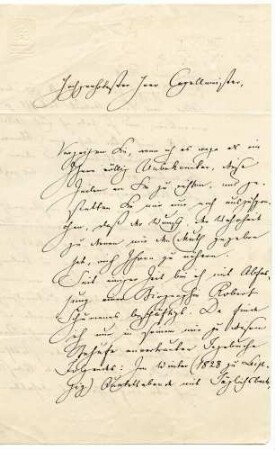 Hochgeehrtester Herr Capellmeister,
Verzeihen Sie, wenn ich es wage als ein
Ihnen völlig Unbekannter, diese
Zeilen an Sie zu richten, und ge-
statten Sie mir nur auszuspre-
chen, daß der Wunsch, die Wahrheit
zu den mir den Muth gegeben
hat, mich Ihnen zu nähern.
Seit einiger Zeit bin ich mit Abfas-
sung einer Biographie Robert
Schumanns beschäftigt. Da finde
ich nun in seinem mir zu diesem
Behufe anvertrauten Tagebuche
Folgendes: Im Winter (1828 zu Leip-
zig) Quartettabende mit Täglichsbeck,